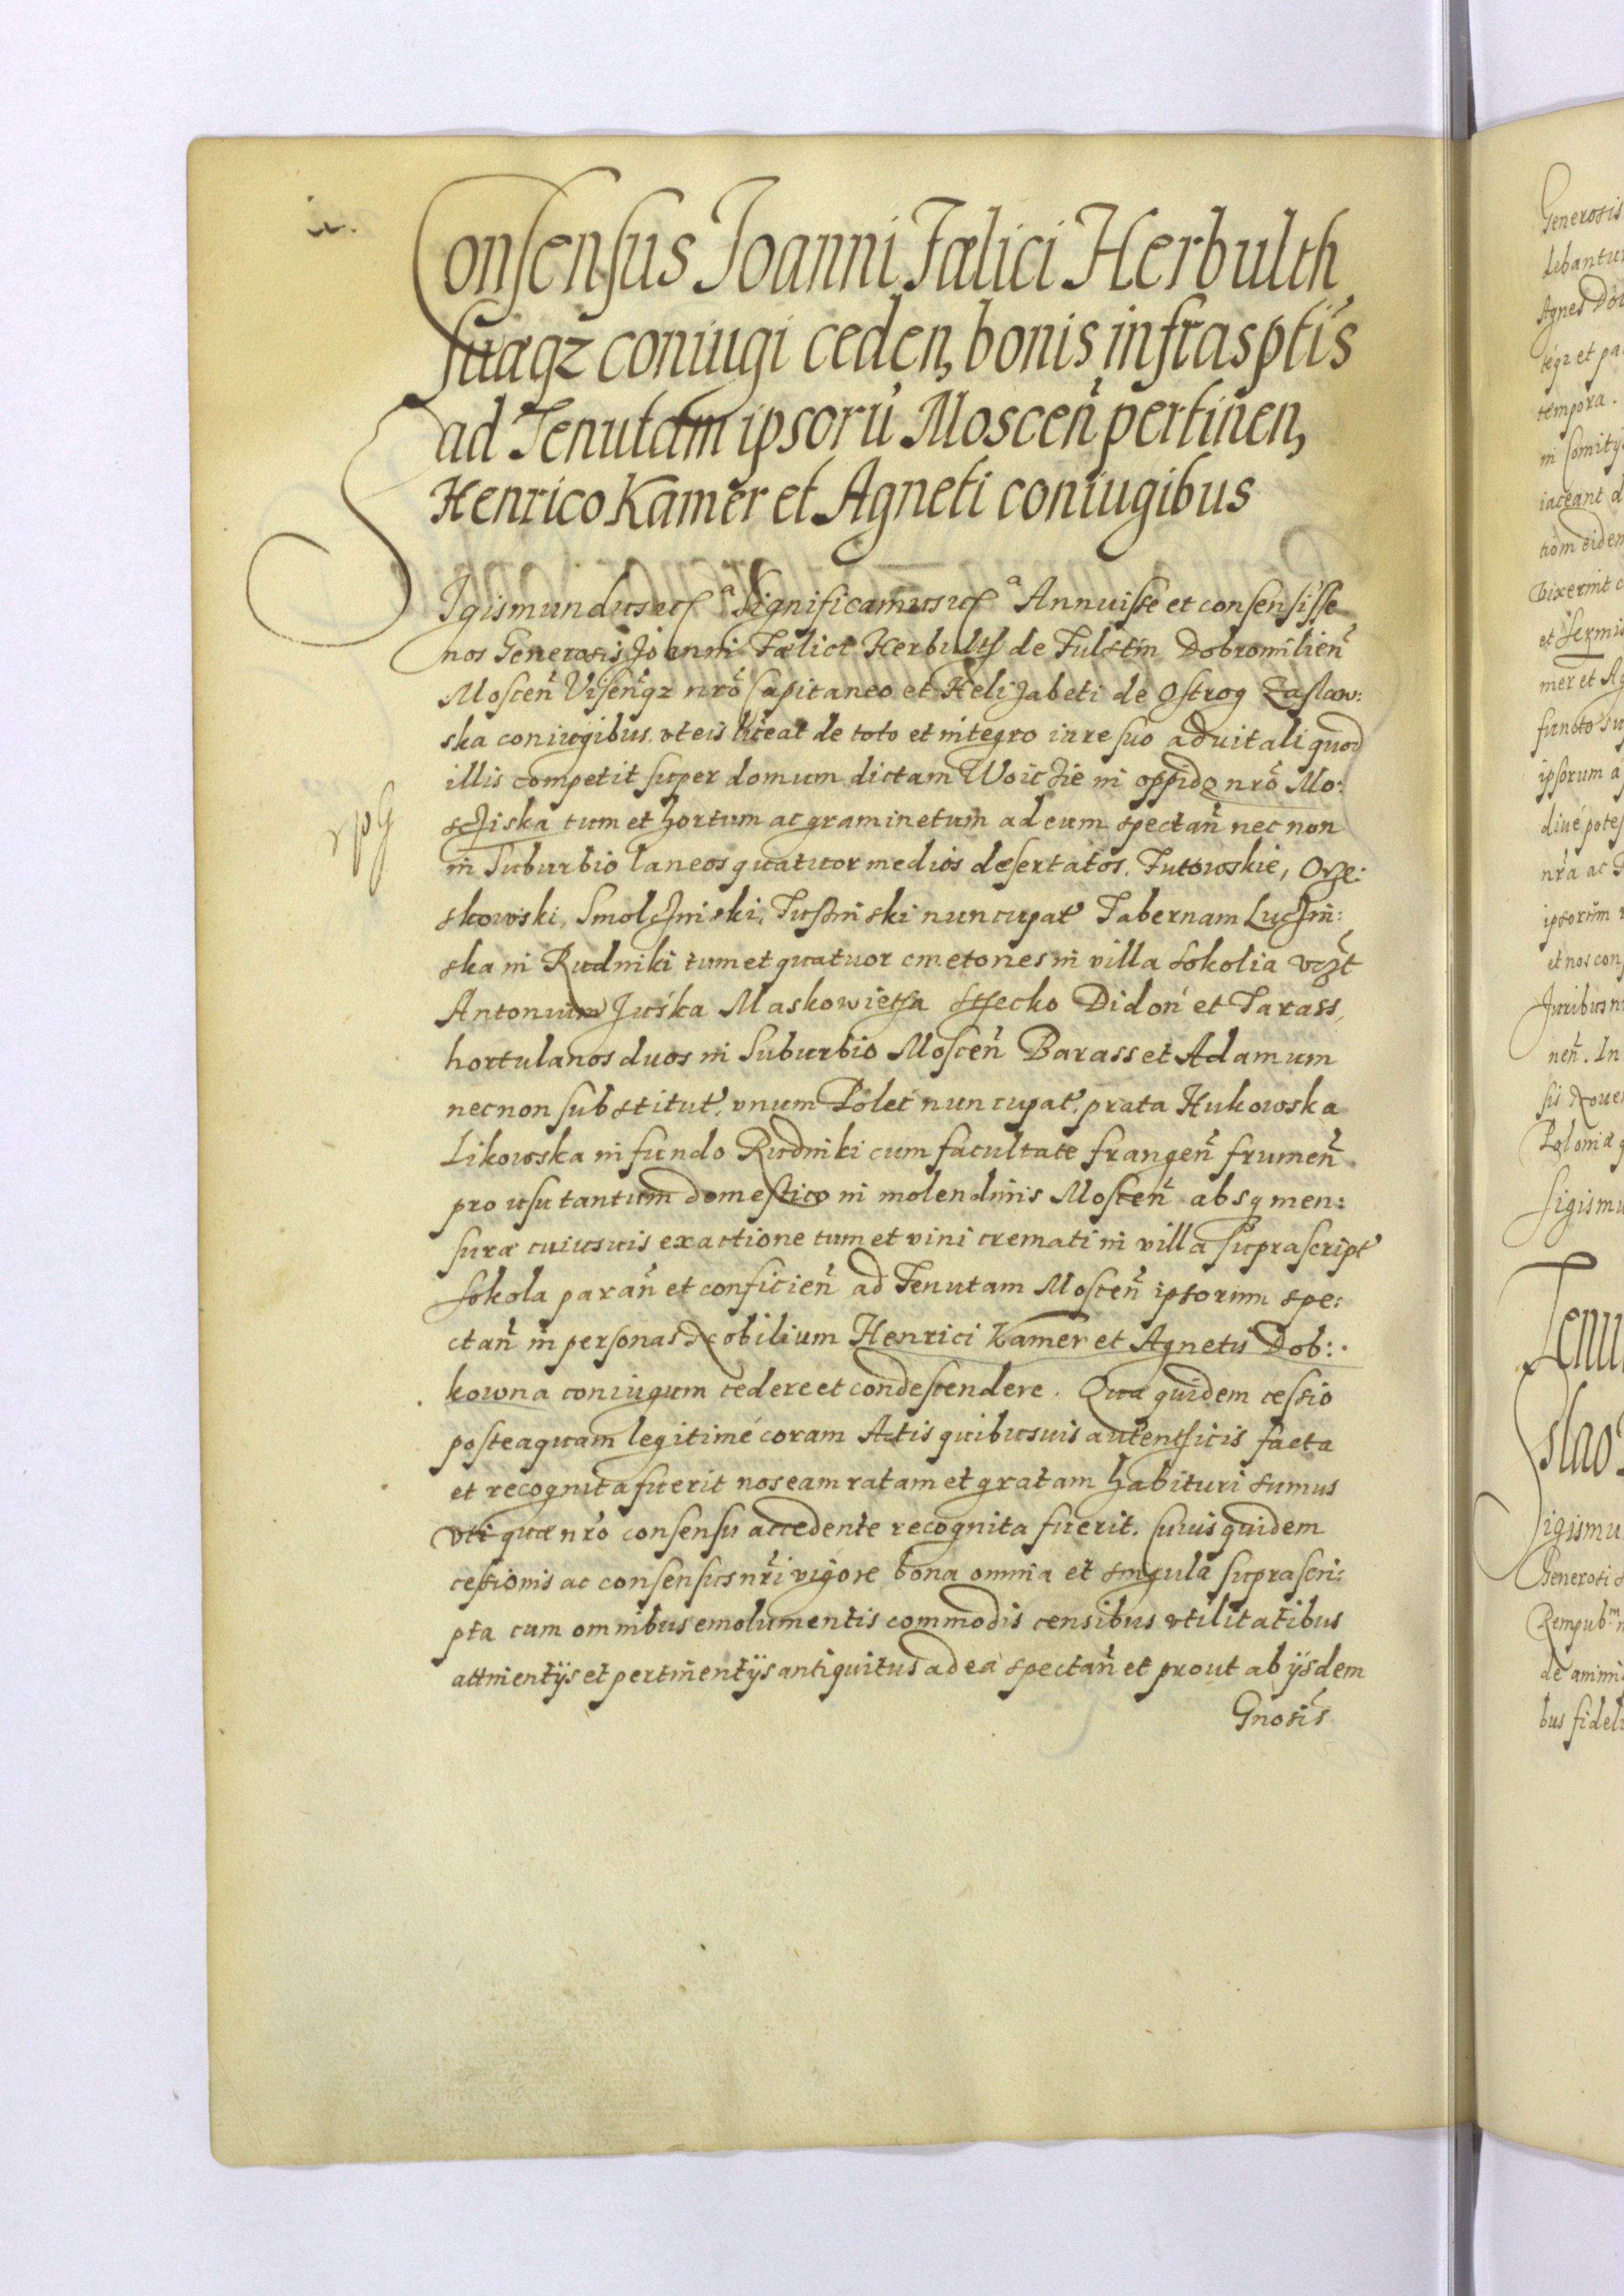 Consensus Joanni Fælici Herbulth
suæqz coniugi ceden, bonis infrasptis
ad Tenutam ipsorū Moscen̄ pertinen,
Henrico Kamer et Agneti coniugibus
Sigismundus etc̃ ᵃ Significamus etc̃ ᵃ Annuisse et consensisse
nos Generosis Joanni Fælici Herbulth de Fulstin Dobromilien̄
Moscen̄ Visen̄qz nrō Capitaneo et Helizabeti de Ostrog Zaslaw:
ska coniugibus. vt eis liceat de toto et integro iure suo aduitali quod
illis competit super domum dictam Woiczie in oppido nrō Mo:
scziska tum et hortum ac graminetum ad eum spectan̄ nec non
in Suburbio laneos quatuor medios desertatos. Futowskie, Orze:
skowski, Smolczinski, Tuszinski nuncupat Tabernam Luczin:
ska in Rudniki tum et quatuor cmetones in villa Sokolia vczt
Antonium Juśka Maskowietza Stecko Didon et Tarass,
hortulanos duos in Suburbio Moscen̄ Barass et Adamum
necnon substitut. vnum Poleć nuncupat. prata Hukowska
Likowska in fundo Rudniki cum facultate frangen̄ frumen̄
pro usu tantum domestico in molendinis Moscen̄ absq men:
suræ cuiusuis exactione tum et vini cremati in villa suprascript
Sokola paran̄ et conficien̄ ad Tenutam Moscen̄ ipsorum spe:
ctan̄ in personas Nobilium Henrici Kamer et Agnetis Dob:
kowna coniugum cedere et condescendere. Quæ quidem cessio
posteaquam legitimé coram Actis quibusuis autenthicis facta
et recognita fuerit nos eam ratam et gratam habituri sumus
vti quæ nrō consensu accedente recognita fuerit. Cuius quidem
cessionis ac consensus nrī vigore bona omnia et singula suprascri:
pta cum omnibus emolumentis commodis censibus vtilitatibus
attinentijs et pertinentijs antiquitus ad ea spectan̄ et prout ab ijsdem
Gnosis
Generosis
debantur
Agnes Do
tempora.
in Comitij
iaceant d
et
mer et Ag
functo su
ipsorum a
nrā ac
ipsorum
et nos con
Juribus n
nen̄. In
Poloniæ
Sigismu
Tenu
slao
Sigismu
Generosi
Rempubᵐ
de animi
bus fideli